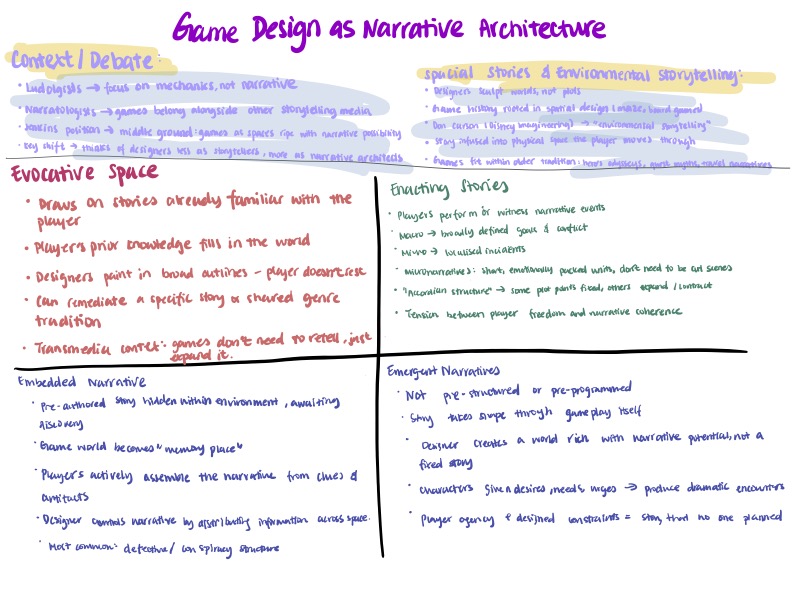 Game Design as Narrative Architecture
Context / Debate:
• Ludologists → focus on mechanics, not narrative
• Narratologists → games belong alongside other storytelling media
• Jenkins position → middle ground: games as spaces ripe with narrative possibility
• Key shift → thinks of designers less as storytellers, more as narrative architects
Spacial Stories & Environmental Storytelling:
• Designers sculpt worlds, not plots
• Game history rooted in spatial design (maze, board games)
• Don Carson (Disney Imagineering) → "environmental storytelling"
• Story infused into physical space the player moves through
• Games fit within older tradition: hero's odysseys, quest myths, travel narratives
Evocative Space
• Draws on stories already familiar with the
player
• Player's prior knowledge fills in the world
• Designers paint in broad outlines – player does the rest
• Can remediate a specific story or shared genre
tradition
• Transmedia context: games don't need to retell, just
expand it.
Enacting Stories
• Players perform or witness narrative events
• Macro → broadly defined goals & conflict
• Micro → localised incidents
• Micronarratives: short, emotionally packed units, don't need to be cut scenes
• "Accordian structure" → some plot points fixed, others expand / contract
• Tension between player freedom and narrative coherence
Embedded Narrative
• Pre-authored story hidden within environment, awaiting
discovery
• Game world becomes "memory place"
• Players actively assemble the narrative from clues &
artifacts
• Designer controls narrative by distributing information across space.
• Most common: detective / conspiracy structure
Emergent Narratives
• Not pre-structured or pre-programmed
• Story takes shape through gameplay itself
• Designer creates a world rich with narrative potential, not a
fixed story
• Characters given desires, needs, urges → produce dramatic encounters
• Player agency + designed constraints = story that no one planned